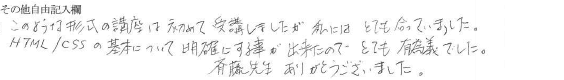 その他自由記入欄
このような形式の講座は初めて受講しましたが私にはとても合っていました。
HTML/CSSの基本について明確にする事が出来たのでとても有意義でした。
斉藤先生ありがとうございました。